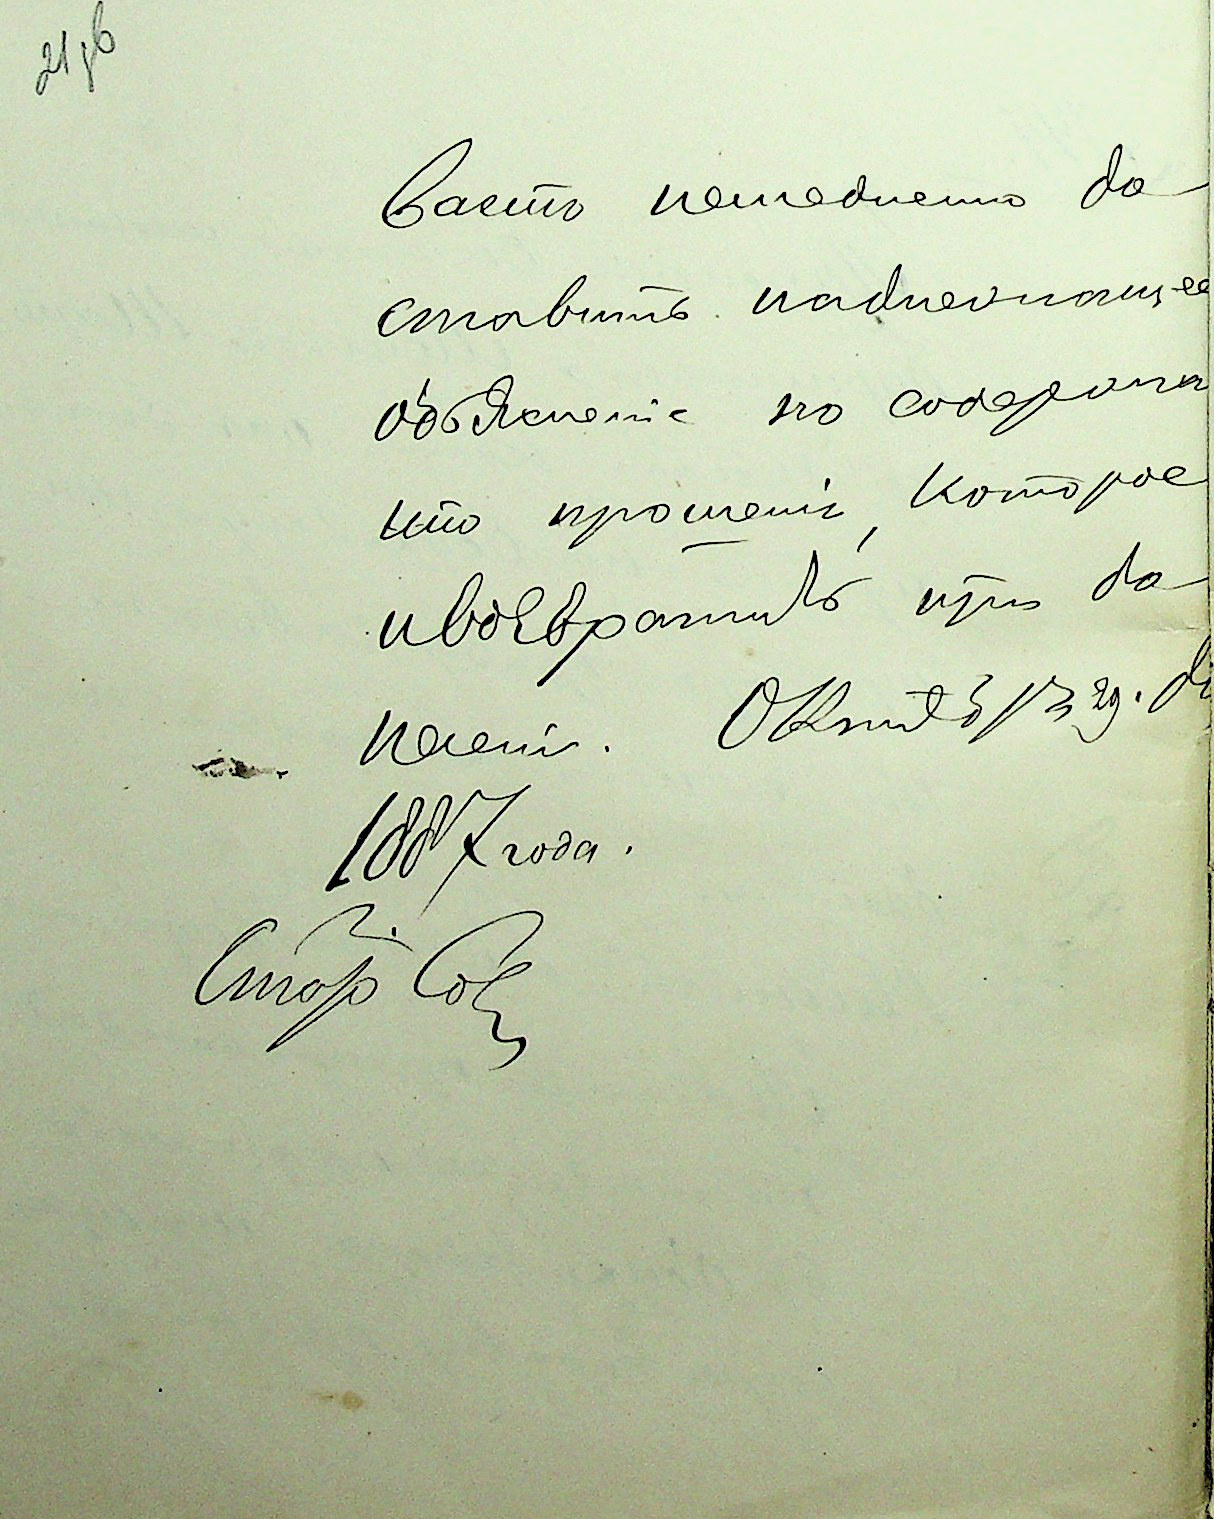 21 об
васть немедленно до
ставить надлежащее
объясненіе по содержа
нію прошенія, которое
и возвратить при до
несеніи. Октября 29. дн
1887 года.
Стар. Сов